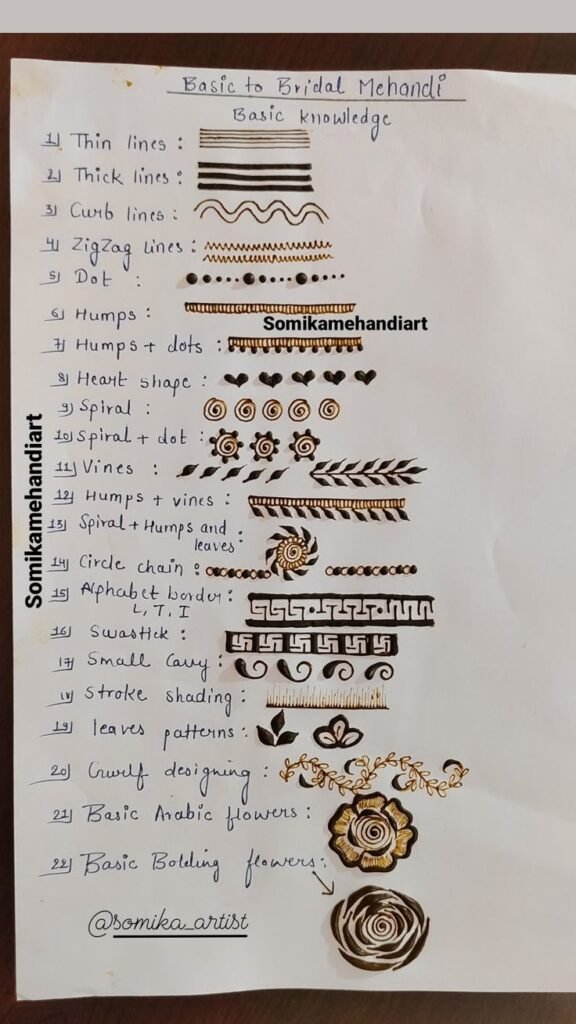 Basic to Bridal Mehandi
Basic knowledge
1) Thin lines :
2) Thick lines :
3) Curb lines :
4) ZigZag lines :
5) Dot :
6) Humps :
Somikamehandiart
7) Humps + dots :
8) Heart shape :
9) Spiral :
10) Spiral + dot :
11) Vines :
12) Humps + vines :
13) Spiral + Humps and
leaves :
14) Circle chain :
15) Alphabet border :
L, T, I
16) Swastick :
17) Small Cavy :
18) Stroke shading :
19) leaves patterns :
20) designing :
21) Basic Arabic flowers :
22) Basic Bolding flowers :
@somika_artist
Somikamehandiart